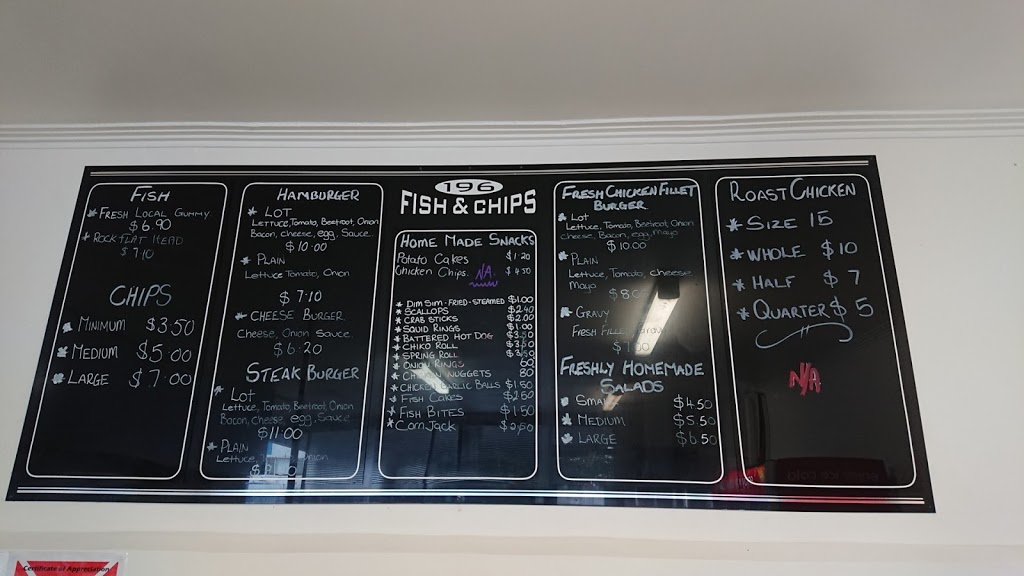 FISH
* FRESH LOCAL GUMMY
$6.90
* ROCK FLAT HEAD
$7.10
CHIPS
* MINIMUM $3.50
* MEDIUM $5.00
* LARGE $7.00
HAMBURGER
* LOT
Lettuce, Tomato, Beetroot, Onion
Bacon, cheese, egg, Sauce.
$10.00
* PLAIN
Lettuce Tomato, Onion
$7.10
* CHEESE BURGER
Cheese, Onion Sauce.
$6.20
STEAK BURGER
* LOT
Lettuce, Tomato, Beetroot, Onion
Bacon, cheese, egg, Sauce
$11.00
* PLAIN
Lettuce, Onion
196
FISH & CHIPS
HOME MADE SNACKS
Potato Cakes $1.20
Chicken Chips. NA. $4.50
* DIM SIM - FRIED - STEAMED $1.00
* SCALLOPS $2.40
* CRAB STICKS $2.00
* SQUID RINGS $1.00
* BATTERED HOT DOG $3.50
* CHIKO ROLL $3.50
* SPRING ROLL
* ONION RINGS 60
* CHICKEN NUGGETS 80
* CHICKEN GARLIC BALLS $1.50
* FISH CAKES $2.50
* FISH BITES $1.50
* Corn Jack $2.50
FRESH CHICKEN FILLET
BURGER
* LOT
Lettuce, Tomato, Beetroot, Onion
cheese, Bacon, egg, Mayo
$10.00
* PLAIN
Lettuce, Tomato, Cheese,
Mayo
* GRAVY
FRESH FILLET Gravy
FRESHLY HOMEMADE
SALADS
* SMALL $4.50
* MEDIUM $5.50
* LARGE $6.50
ROAST CHICKEN
* SIZE 15
* WHOLE $10
* HALF $7
* QUARTER $5
N/A
Certificate of Appreciation